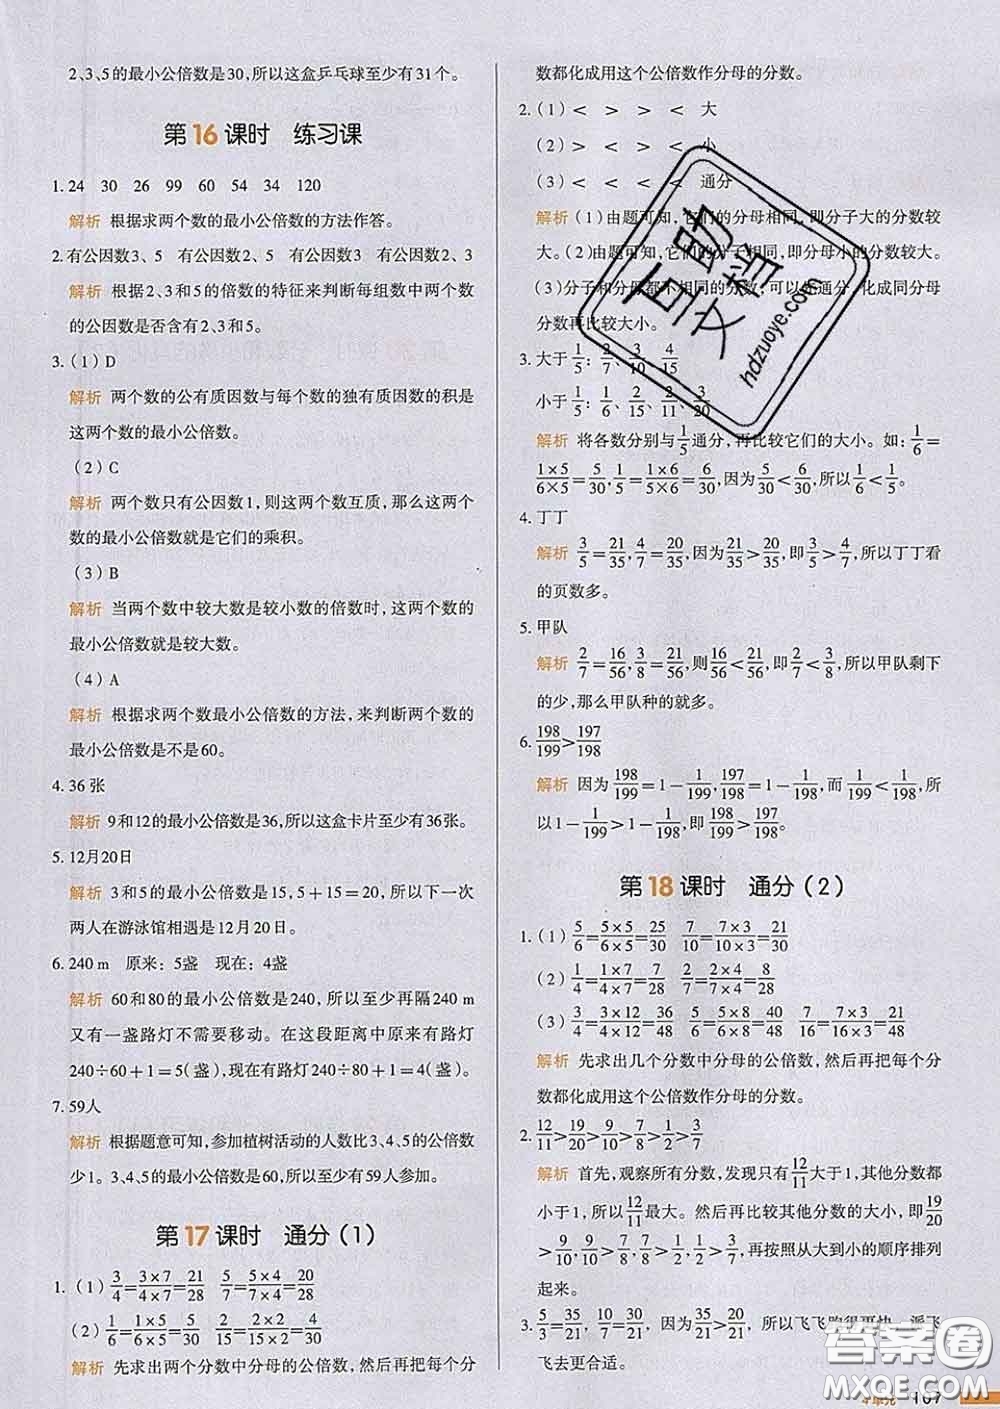 2、3、5的最小公倍数是30,所以这盒乒乓球至少有31个。
第16课时 练习课
1. 24 30 26 99 60 54 34 120
解析 根据求两个数的最小公倍数的方法作答。
2. 有公因数3、5 有公因数2、5 有公因数3 有公因数2、3
解析 根据2、3和5的倍数的特征来判断每组数中两个数
的公因数是否含有2、3和5。
3. (1) D
解析 两个数的公有质因数与每个数的独有质因数的积是
这两个数的最小公倍数。
(2) C
解析 两个数只有公因数1,则这两个数互质,那么这两个
数的最小公倍数就是它们的乘积。
(3) B
解析 当两个数中较大数是较小数的倍数时,这两个数的
最小公倍数就是较大数。
(4) A
解析 根据求两个数最小公倍数的方法,来判断两个数的
最小公倍数是不是60。
4. 36张
解析 9和12的最小公倍数是36,所以这盒卡片至少有36张。
5. 12月20日
解析 3和5的最小公倍数是15,5+15=20,所以下一次
两人在游泳馆相遇是12月20日。
6. 240 m 原来:5盏 现在:4盏
解析 60和80的最小公倍数是240,所以至少再隔240 m
又有一盏路灯不需要移动。在这段距离中原来有路灯
240÷60+1=5(盏),现在有路灯240÷80+1=4(盏)。
7. 59人
解析 根据题意可知,参加植树活动的人数比3、4、5的公倍数
少1。3、4、5的最小公倍数是60,所以至少有59人参加。
第17课时 通分(1)
1. (1) 3/4=3×7/4×7=21/28 5/7=5×4/7×4=20/28
(2) 1/6=1×5/6×5=5/30 2/15=2×2/15×2=4/30
解析 先求出两个分数中分母的公倍数,然后再把每个分
数都化成用这个公倍数作分母的分数。
2. (1) < > > < 大
(2) > < > 小
(3) < < < < 通分
解析 (1)由题可知,它们的分母相同,即分子大的分数较
大。(2)由题可知,它们的分子相同,即分母小的分数较大。
(3)分子和分母都不相同的分数,可以先通分,化成同分母
分数再比较大小。
3. 大于1/5:2/7、3/10、4/15
小于1/5:1/6、2/15、2/11、3/20
解析 将各数分别与1/5通分,再比较它们的大小。如:1/6=
1×5/6×5=5/30,1/5=1×6/5×6=6/30,因为5/30<6/30,所以1/6<1/5。
4. 丁丁
解析 3/5=21/35,4/7=20/35,因为21/35>20/35,即3/5>4/7,所以丁丁看
的页数多。
5. 甲队
解析 2/7=16/56,3/8=21/56,则16/56<21/56,即2/7<3/8,所以甲队剩下
的少,那么甲队种的就多。
6. 198/199>197/198
解析 因为198/199=1-1/199,197/198=1-1/198,而1/199<1/198,所
以1-1/199>1-1/198,即198/199>197/198。
第18课时 通分(2)
1. (1) 5/6=5×5/6×5=25/30 7/10=7×3/10×3=21/30
(2) 1/4=1×7/4×7=7/28 2/7=2×4/7×4=8/28
(3) 3/4=3×12/4×12=36/48 5/6=5×8/6×8=40/48 7/16=7×3/16×3=21/48
解析 先求出几个分数中分母的公倍数,然后再把每个分
数都化成用这个公倍数作分母的分数。
2. 12/11>19/20>9/10>7/8>1/2>3/7
解析 首先,观察所有分数,发现只有12/11大于1,其他分数都
小于1,所以12/11最大。然后再比较其他分数的大小,即19/20
>9/10,9/10>7/8,7/8>1/2,1/2>3/7,再按照从大到小的顺序排列
起来。
3. 5/3=35/21,10/7=30/21,因为35/21>30/21,所以飞飞跑得更快,派飞
飞去更合适。
4单元 107
互助文档
hdzuoye.com
答案圈
MXQE.COM